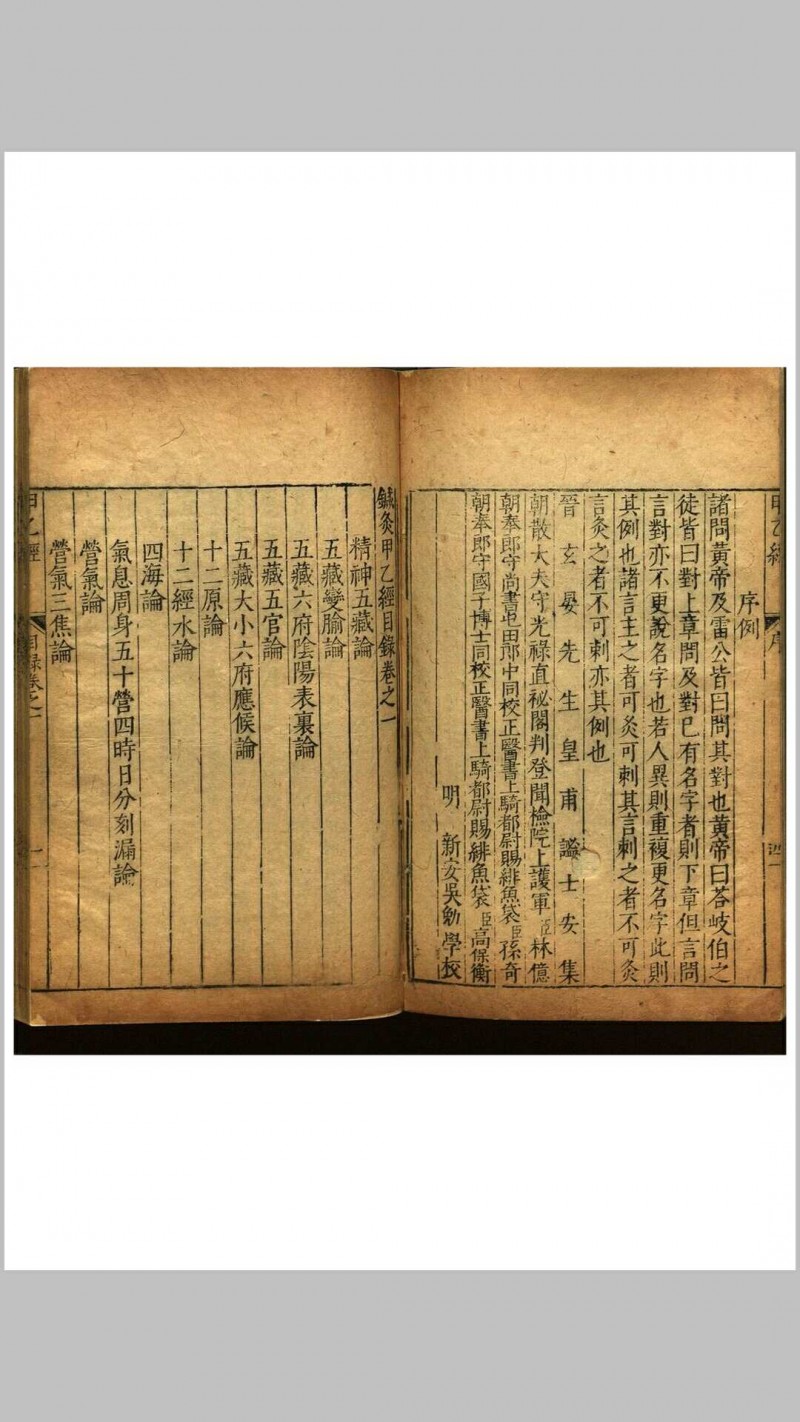 甲乙經
序
四
序例
諸問黃帝及雷公皆曰問其對也黃帝曰荅岐伯之
徒皆曰對上章問及對已有名字者則下章但言問
言對亦不更說名字也若人異則重複更名字此則
其例也諸言主之者可灸可刺其言刺之者不可灸
言灸之者不可刺亦其例也
晉玄晏先生皇甫謐士安集
朝散大夫守光祿直祕閣判登聞檢院上護軍臣林億
朝奉郎守尚書屯田郎中同校正醫書上騎都尉賜緋魚袋臣孫奇
朝奉郎守國子博士同校正醫書上騎都尉賜緋魚袋臣高保衡
明新安吳勉學校
鍼灸甲乙經目錄卷之一
精神五藏論
五藏變腧論
五藏六府陰陽表裏論
五藏五官論
五藏大小六府應候論
十二原論
十二經水論
四海論
氣息周身五十營四時日分刻漏論
營氣論
營氣三焦論
甲乙經
目錄卷之一
一